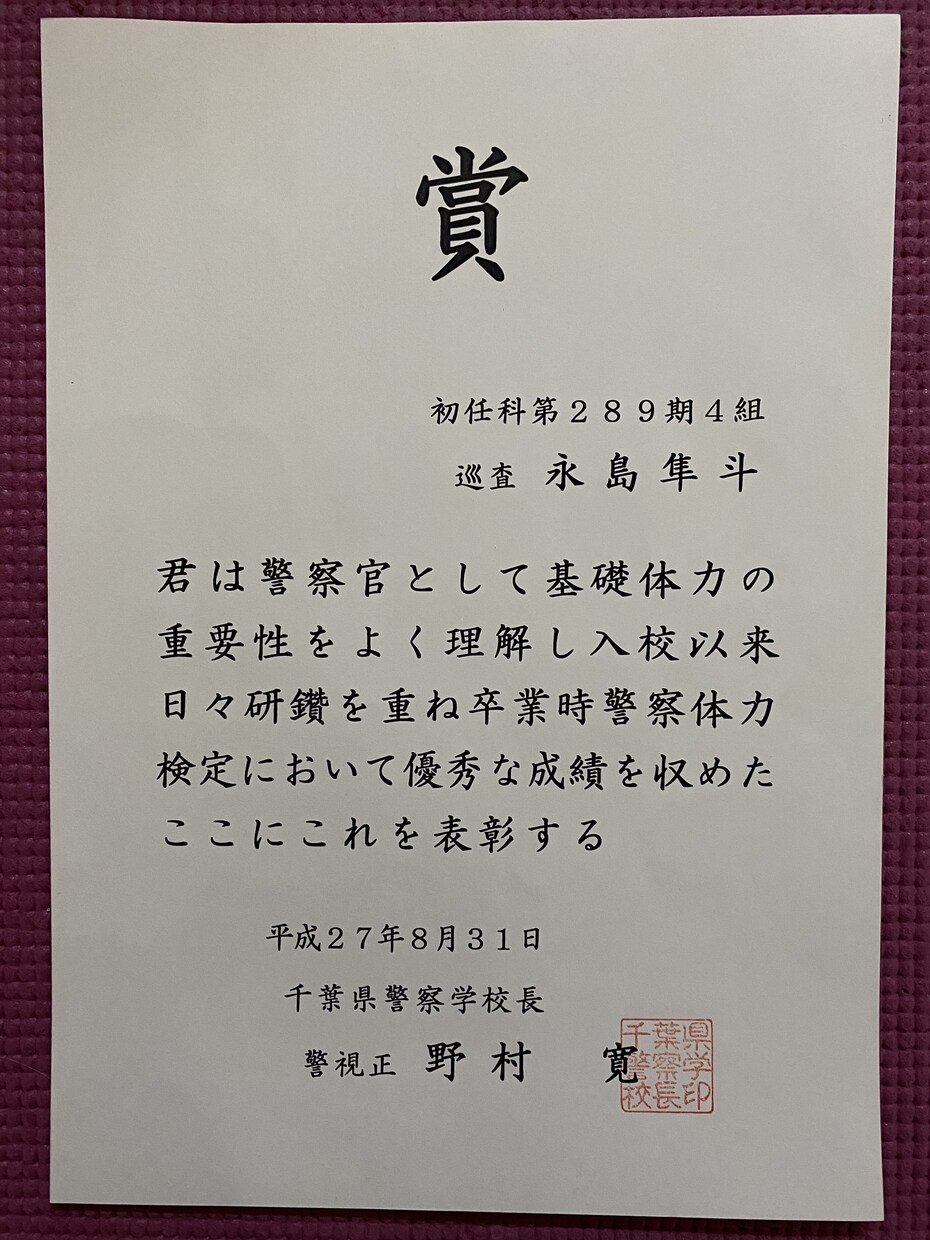 賞
初任科第２８９期４組
巡査 永島隼斗
君は警察官として基礎体力の
重要性をよく理解し入校以来
日々研鑽を重ね卒業時警察体力
検定において優秀な成績を収めた
ここにこれを表彰する
平成２７年８月３１日
千葉県警察学校長
警視正 野村 寛
千葉県
警察学
校長印